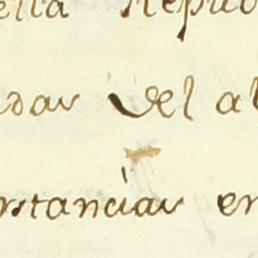 ella Repub
dar del al
rstancias en